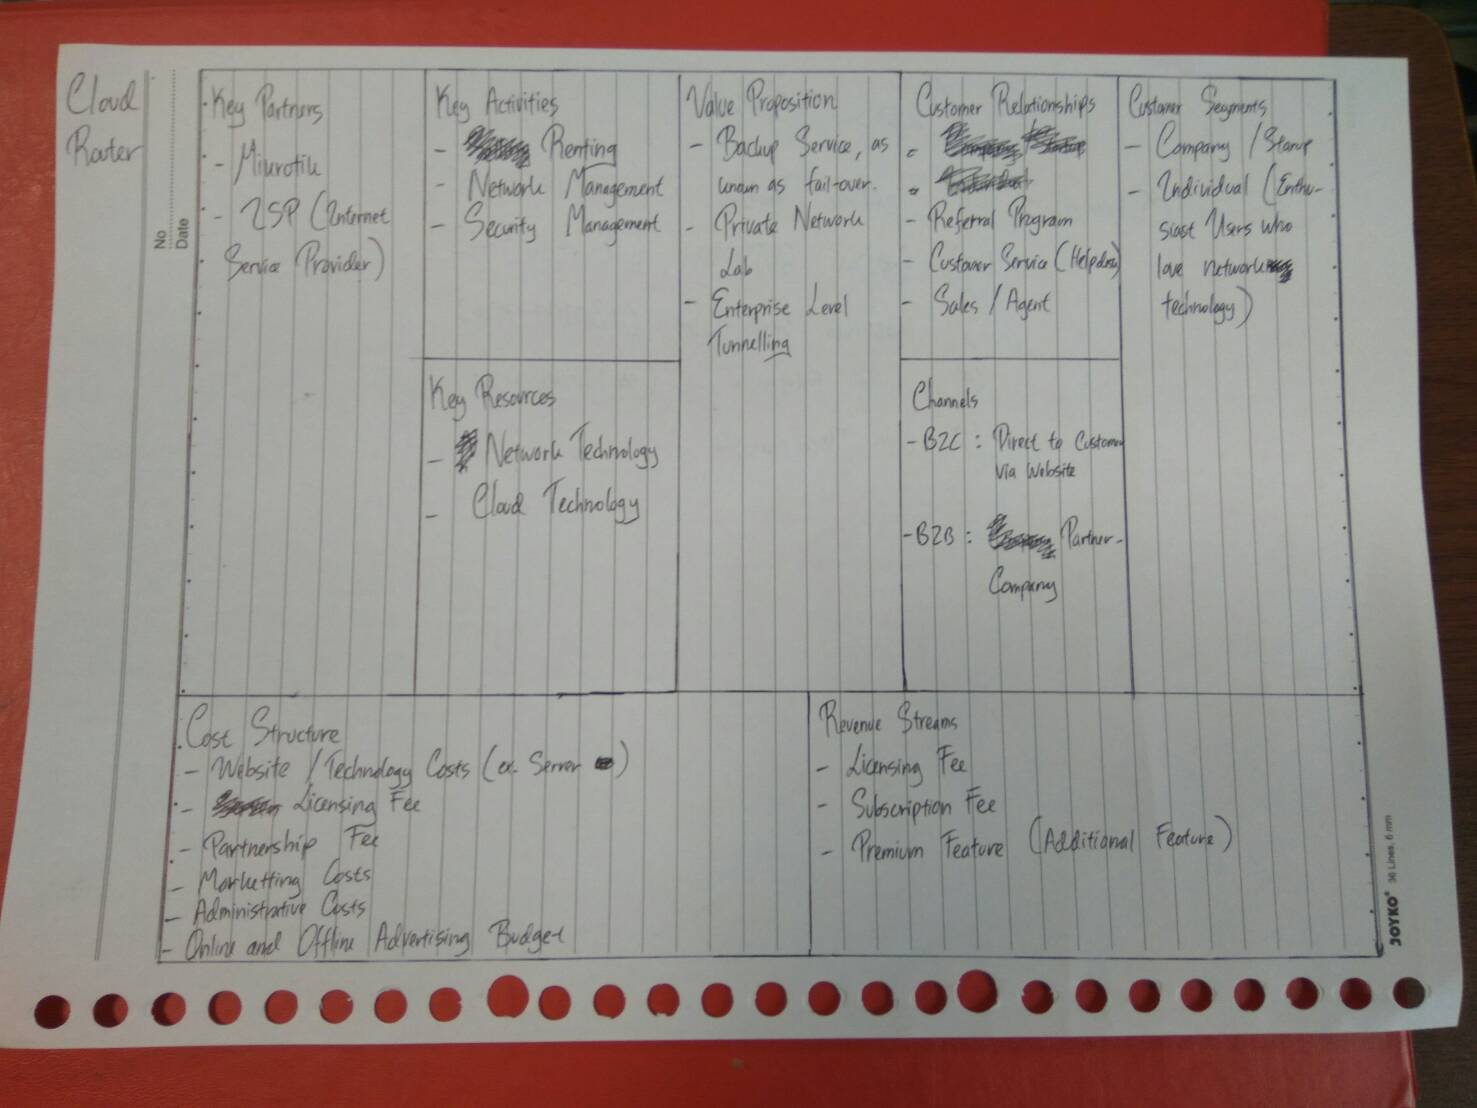 Cloud
Router
No
Date
Key Partners
- Mikrotik
- ISP (Internet
Service Provider)
Key Activities
- Renting
- Network Management
- Security Management
Key Resources
- Network Technology
- Cloud Technology
Value Proposition
- Backup Service, as
known as fail-over.
- Private Network
Lab
- Enterprise Level
Tunnelling
Customer Relationships
- Referral Program
- Customer Service (Helpdesk)
- Sales / Agent
Channels
- B2C : Direct to Customer
via Website
- B2B : Partner -
Company
Customer Segments
- Company / Starup
- Individual (Enthu-
siast Users who
love network
technology)
Cost Structure
- Website / Technology Costs (ex. Server )
- Licensing Fee
- Partnership Fee
- Marketting Costs
- Administrative Costs
- Online and Offline Advertising Budget
Revenue Streams
- Licensing Fee
- Subscription Fee
- Premium Feature (Additional Feature)
JOYKO® 36 Lines, 6 mm